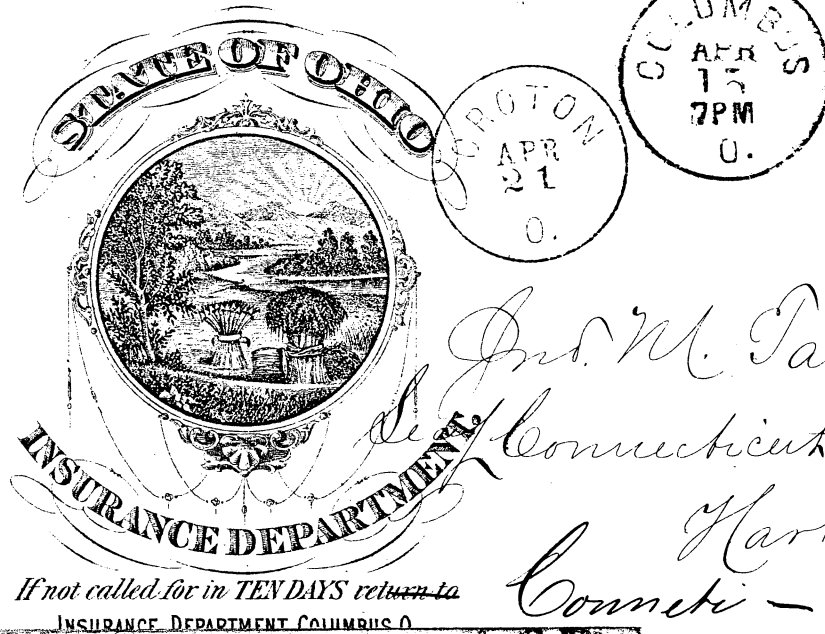 STATE OF OHIO
INSURANCE DEPARTMENT.
If not called for in TEN DAYS return to
INSURANCE DEPARTMENT COLUMBUS O.
CROTON
APR
21
O.
COLUMBUS
APR
15
7PM
O.
Jno. M. Ta
Connecticut
Har
Connecti –